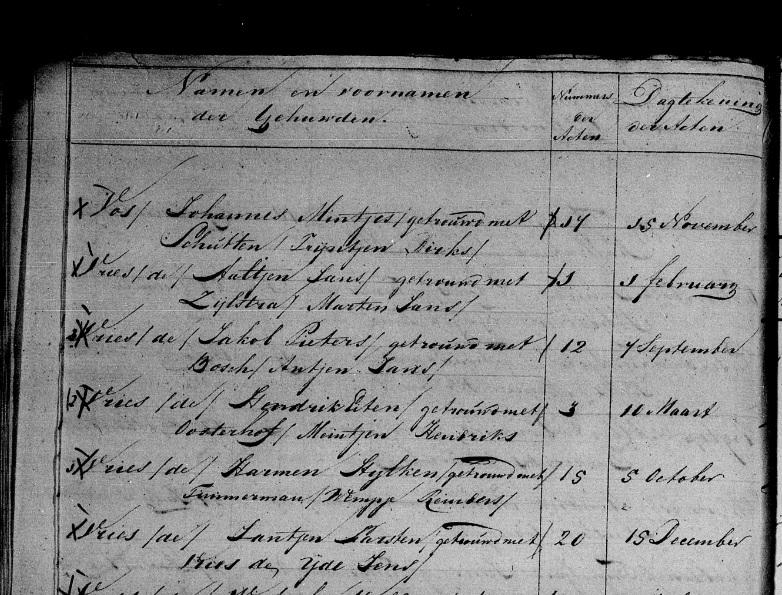 Namen en voornamen
der Gehuwden.
Nummers
der
Acten
Dagtekening
der Acten.
Vos / Johannes Mintjes / getrouwd met / 17 15 November
Schutten / Trijntjen Dirks /
Vries / de / Aaltjen Jans / getrouwd met / 1 1 february
Zijlstra / Marten Jans /
Vries / de / Jakob Pieters / getrouwd met / 12 7 September
Bosch / Antjen Jans /
Vries / de / Hendrik / getrouwd met / 3 10 Maart
Oosterhof / Meintjen Hendriks
Vries / de / Harmen / getrouwd met / 15 5 October
Timmerman /
Vries / de / Jantjen Karsten / getrouwd met / 20 15 December
Vries de, Yde Jens /